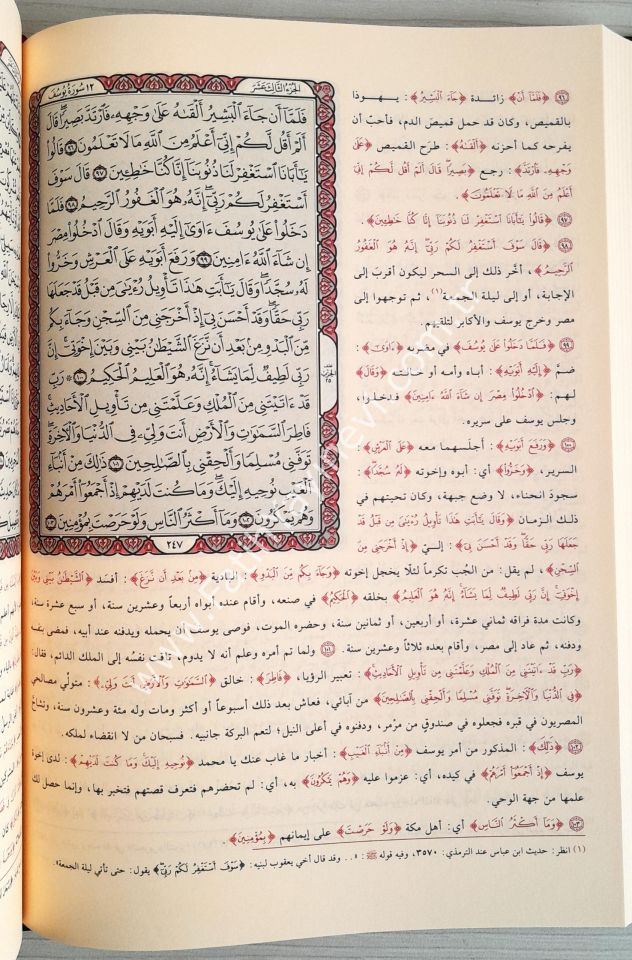 الجزء الثالث عشر
١٢ سورة يوسف
فَلَمَّآ أَن جَآءَ ٱلْبَشِيرُ أَلْقَىٰهُ عَلَىٰ وَجْهِهِۦ فَٱرْتَدَّ بَصِيرًا ۖ قَالَ
أَلَمْ أَقُل لَّكُمْ إِنِّىٓ أَعْلَمُ مِنَ ٱللَّهِ مَا لَا تَعْلَمُونَ ٩٦ قَالُوا۟
يَٰٓأَبَانَا ٱسْتَغْفِرْ لَنَا ذُنُوبَنَآ إِنَّا كُنَّا خَٰطِـِٔينَ ٩٧ قَالَ سَوْفَ
أَسْتَغْفِرُ لَكُمْ رَبِّىٓ ۖ إِنَّهُۥ هُوَ ٱلْغَفُورُ ٱلرَّحِيمُ ٩٨ فَلَمَّا
دَخَلُوا۟ عَلَىٰ يُوسُفَ ءَاوَىٰٓ إِلَيْهِ أَبَوَيْهِ وَقَالَ ٱدْخُلُوا۟ مِصْرَ
إِن شَآءَ ٱللَّهُ ءَامِنِينَ ٩٩ وَرَفَعَ أَبَوَيْهِ عَلَى ٱلْعَرْشِ وَخَرُّوا۟
لَهُۥ سُجَّدًا ۖ وَقَالَ يَٰٓأَبَتِ هَٰذَا تَأْوِيلُ رُءْيَٰىَ مِن قَبْلُ قَدْ جَعَلَهَا
رَبِّى حَقًّا ۖ وَقَدْ أَحْسَنَ بِىٓ إِذْ أَخْرَجَنِى مِنَ ٱلسِّجْنِ وَجَآءَ بِكُم
مِّنَ ٱلْبَدْوِ مِنۢ بَعْدِ أَن نَّزَغَ ٱلشَّيْطَٰنُ بَيْنِى وَبَيْنَ إِخْوَتِىٓ ۚ إِنَّ
رَبِّى لَطِيفٌ لِّمَا يَشَآءُ ۚ إِنَّهُۥ هُوَ ٱلْعَلِيمُ ٱلْحَكِيمُ ١٠٠ ۞ رَبِّ
قَدْ ءَاتَيْتَنِى مِنَ ٱلْمُلْكِ وَعَلَّمْتَنِى مِن تَأْوِيلِ ٱلْأَحَادِيثِ ۚ
فَاطِرَ ٱلسَّمَٰوَٰتِ وَٱلْأَرْضِ أَنتَ وَلِىِّۦ فِى ٱلدُّنْيَا وَٱلْءَاخِرَةِ ۖ
تَوَفَّنِى مُسْلِمًا وَأَلْحِقْنِى بِٱلصَّٰلِحِينَ ١٠١ ذَٰلِكَ مِنْ أَنۢبَآءِ
ٱلْغَيْبِ نُوحِيهِ إِلَيْكَ ۖ وَمَا كُنتَ لَدَيْهِمْ إِذْ أَجْمَعُوٓا۟ أَمْرَهُمْ
وَهُمْ يَمْكُرُونَ ١٠٢ وَمَآ أَكْثَرُ ٱلنَّاسِ وَلَوْ حَرَصْتَ بِمُؤْمِنِينَ ١٠٣
٢٤٧
٩٦ ﴿فَلَمَّا أَن﴾ زائدة ﴿جَآءَ ٱلْبَشِيرُ﴾: يهوذا
بالقميص، وكان قد حمل قميصَ الدم، فأحبّ أن
يفرحه كما أحزنه ﴿أَلْقَىٰهُ﴾: طرَح القميص ﴿عَلَىٰ
وَجْهِهِۦ فَٱرْتَدَّ﴾: رجع ﴿بَصِيرًا قَالَ أَلَمْ أَقُل لَّكُمْ إِنِّىٓ
أَعْلَمُ مِنَ ٱللَّهِ مَا لَا تَعْلَمُونَ﴾.
٩٧ ﴿قَالُوا۟ يَٰٓأَبَانَا ٱسْتَغْفِرْ لَنَا ذُنُوبَنَآ إِنَّا كُنَّا خَٰطِـِٔينَ﴾.
٩٨ ﴿قَالَ سَوْفَ أَسْتَغْفِرُ لَكُمْ رَبِّىٓ إِنَّهُۥ هُوَ ٱلْغَفُورُ
ٱلرَّحِيمُ﴾، أخّر ذلك إلى السحر ليكون أقربَ إلى
الإجابة، أو إلى ليلة الجمعة(١)، ثم توجهوا إلى
مصر وخرج يوسف والأكابر لتلقيهم.
٩٩ ﴿فَلَمَّا دَخَلُوا۟ عَلَىٰ يُوسُفَ﴾ في مضربه ﴿ءَاوَىٰٓ﴾:
ضمَّ ﴿إِلَيْهِ أَبَوَيْهِ﴾: أباه وأمه أو خالته ﴿وَقَالَ﴾
لهم: ﴿ٱدْخُلُوا۟ مِصْرَ إِن شَآءَ ٱللَّهُ ءَامِنِينَ﴾ فدخلوا،
وجلس يوسف على سريره.
١٠٠ ﴿وَرَفَعَ أَبَوَيْهِ﴾: أجلسهما معه ﴿عَلَى ٱلْعَرْشِ﴾:
السرير، ﴿وَخَرُّوا۟﴾ أي: أبوه وإخوته ﴿لَهُۥ سُجَّدًا﴾:
سجودَ انحناء، لا وضع جبهة، وكان تحيتهم في
ذلك الزمان ﴿وَقَالَ يَٰٓأَبَتِ هَٰذَا تَأْوِيلُ رُءْيَٰىَ مِن قَبْلُ قَدْ
جَعَلَهَا رَبِّى حَقًّا وَقَدْ أَحْسَنَ بِىٓ﴾: إليّ ﴿إِذْ أَخْرَجَنِى مِنَ
ٱلسِّجْنِ﴾، لم يقل: من الجُب تكرماً لئلا يخجل إخوته ﴿وَجَآءَ بِكُم مِّنَ ٱلْبَدْوِ﴾: البادية ﴿مِنۢ بَعْدِ أَن نَّزَغَ﴾: أفسَد ﴿ٱلشَّيْطَٰنُ بَيْنِى وَبَيْنَ
إِخْوَتِىٓ إِنَّ رَبِّى لَطِيفٌ لِّمَا يَشَآءُ إِنَّهُۥ هُوَ ٱلْعَلِيمُ﴾ بخلقه ﴿ٱلْحَكِيمُ﴾ في صنعه، وأقام عنده أبواه أربعاً وعشرين سنة، أو سبع عشرة سنة،
وكانت مدة فراقه ثماني عشرة، أو أربعين، أو ثمانين سنة، وحضره الموت، فوصى يوسف أن يحمله ويدفنه عند أبيه، فمضى بنفسه
ودفنه، ثم عاد إلى مصر، وأقام بعده ثلاثاً وعشرين سنة. ١٠١ ولما تم أمره وعلم أنه لا يدوم، تاقت نفسُه إلى الملك الدائم، فقال:
﴿رَبِّ قَدْ ءَاتَيْتَنِى مِنَ ٱلْمُلْكِ وَعَلَّمْتَنِى مِن تَأْوِيلِ ٱلْأَحَادِيثِ﴾: تعبير الرؤيا، ﴿فَاطِرَ﴾: خالق ﴿ٱلسَّمَٰوَٰتِ وَٱلْأَرْضِ أَنتَ وَلِىِّۦ﴾: متولّي مصالحي
﴿فِى ٱلدُّنْيَا وَٱلْءَاخِرَةِ تَوَفَّنِى مُسْلِمًا وَأَلْحِقْنِى بِٱلصَّٰلِحِينَ﴾ من آبائي، فعاش بعد ذلك أسبوعاً أو أكثر ومات وله مئة وعشرون سنة، وتشاحّ
المصريون في قبره فجعلوه في صندوقٍ من مرْمر، ودفنوه في أعلى النيل؛ لتعم البركة جانبيه. فسبحان من لا انقضاء لملكه.
١٠٢ ﴿ذَٰلِكَ﴾: المذكور من أمر يوسف ﴿مِنْ أَنۢبَآءِ ٱلْغَيْبِ﴾: أخبار ما غاب عنك يا محمد ﴿نُوحِيهِ إِلَيْكَ وَمَا كُنتَ لَدَيْهِمْ﴾: لدى إخوة
يوسف ﴿إِذْ أَجْمَعُوٓا۟ أَمْرَهُمْ﴾ في كيده، أي: عزموا عليه ﴿وَهُمْ يَمْكُرُونَ﴾ به، أي: لم تحضرهم فتعرف قصتهم فتخبر بها، وإنما حصل لك
علمها من جهة الوحي.
١٠٣ ﴿وَمَآ أَكْثَرُ ٱلنَّاسِ﴾ أي: أهل مكة ﴿وَلَوْ حَرَصْتَ﴾ على إيمانهم ﴿بِمُؤْمِنِينَ﴾.
(١) انظر: حديث ابن عباس عند الترمذي: ٣٥٧٠، وفيه قوله ﷺ: «.. وقد قال أخي يعقوب لبنيه: ﴿سَوْفَ أَسْتَغْفِرُ لَكُمْ رَبِّىٓ﴾ يقول: حتى تأتي ليلة الجمعة».